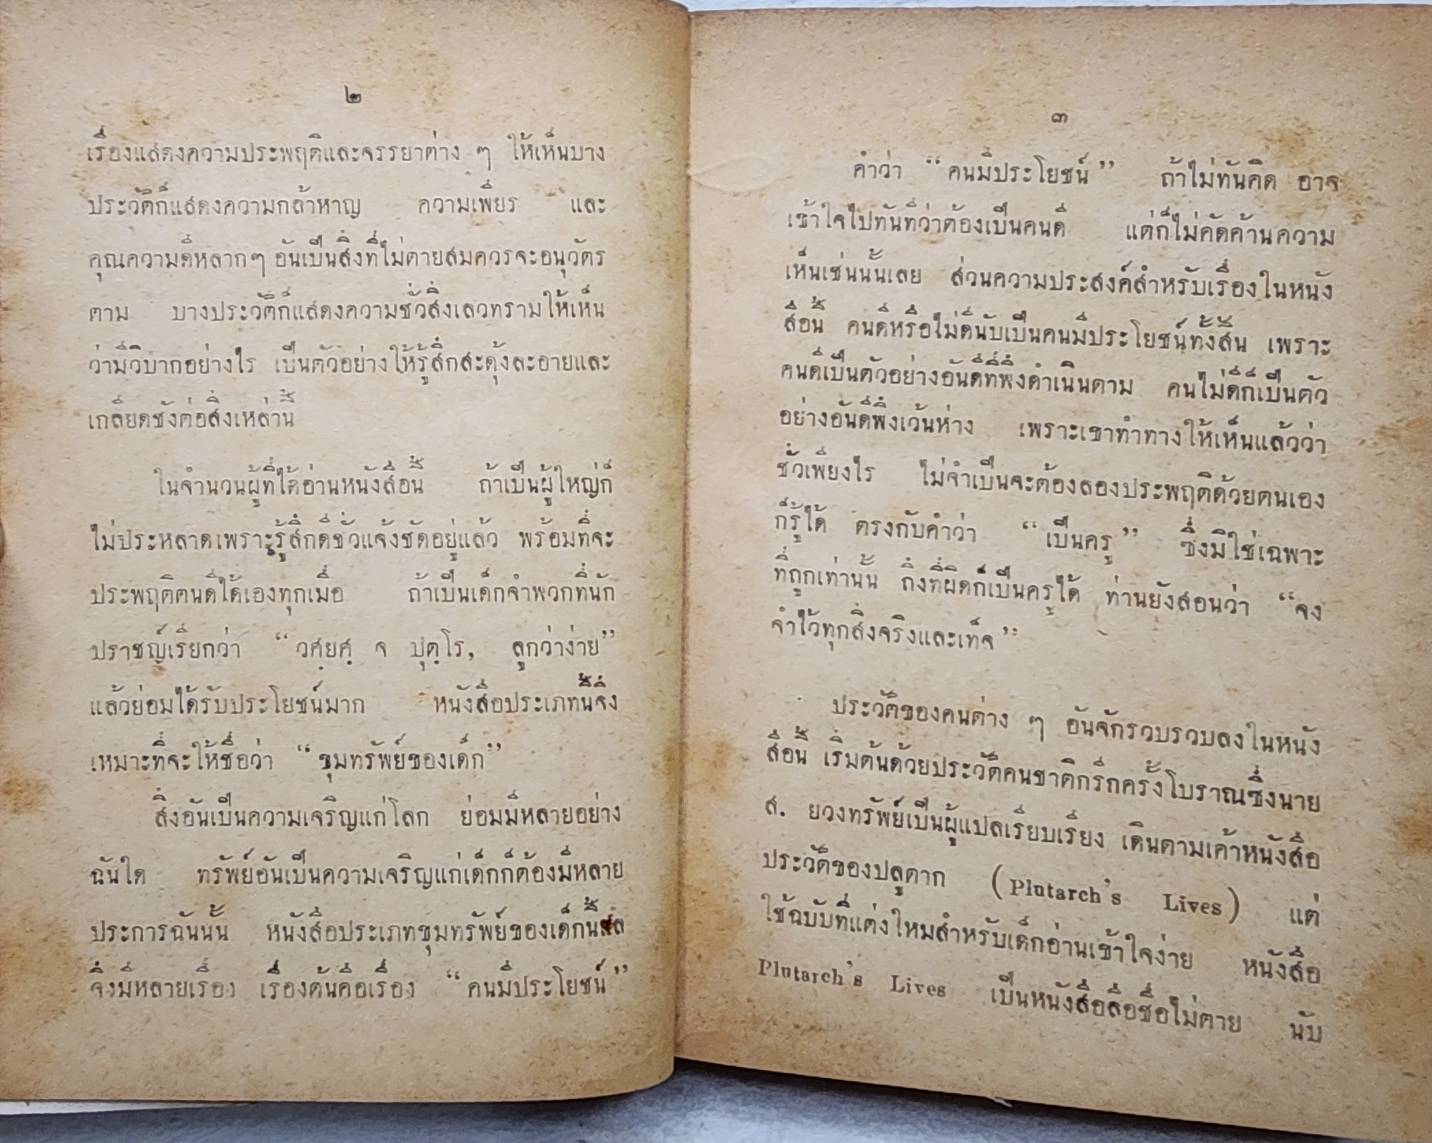 ๒
เรื่องแสดงความประพฤติและจรรยาต่าง ๆ ให้เห็นบาง
ประวัติก็แสดงความกล้าหาญ ความเพียร และ
คุณความดีหลากๆ อันเป็นสิ่งที่ไม่ตายสมควรจะอนุวัตร
ตาม บางประวัติก็แสดงความชั่วสิ่งเลวทรามให้เห็น
ว่ามีวิบากอย่างไร เป็นตัวอย่างให้รู้สึกสะดุ้งละอายและ
เกลียดชังต่อสิ่งเหล่านี้
ในจำนวนผู้ที่ได้อ่านหนังสือนี้ ถ้าเป็นผู้ใหญ่ก็
ไม่ประหลาดเพราะรู้สึกดีชั่วแจ้งชัดอยู่แล้ว พร้อมที่จะ
ประพฤติตนดีได้เองทุกเมื่อ ถ้าเป็นเด็กจำพวกที่นัก
ปราชญ์เรียกว่า “วศฺยศฺ จ ปุตฺโร, ลูกว่าง่าย”
แล้วย่อมได้รับประโยชน์มาก หนังสือประเภทนี้จึ่ง
เหมาะที่จะให้ชื่อว่า “ขุมทรัพย์ของเด็ก”
สิ่งอันเป็นความเจริญแก่โลก ย่อมมีหลายอย่าง
ฉันใด ทรัพย์อันเป็นความเจริญแก่เด็กก็ต้องมีหลาย
ประการฉันนั้น หนังสือประเภทขุมทรัพย์ของเด็กนี้
จึ่งมีหลายเรื่อง เรื่องต้นคือเรื่อง “คนมีประโยชน์”
๓
คำว่า “คนมีประโยชน์” ถ้าไม่ทันคิด อาจ
เข้าใจไปทันทีว่าต้องเป็นคนดี แต่ก็ไม่คัดค้านความ
เห็นเช่นนั้นเลย ส่วนความประสงค์สำหรับเรื่องในหนัง
สือนี้ คนดีหรือไม่ดีนับเป็นคนมีประโยชน์ทั้งสิ้น เพราะ
คนดีเป็นตัวอย่างอันดีที่พึงดำเนินตาม คนไม่ดีก็เป็นตัว
อย่างอันดีพึงเว้นห่าง เพราะเขาทำทางให้เห็นแล้วว่า
ชั่วเพียงไร ไม่จำเป็นจะต้องลองประพฤติด้วยตนเอง
ก็รู้ได้ ตรงกับคำว่า “เป็นครู” ซึ่งมิใช่เฉพาะ
ที่ถูกเท่านั้น ถึงที่ผิดก็เป็นครูได้ ท่านยังสอนว่า “จง
จำไว้ทุกสิ่งจริงและเท็จ”
ประวัติของคนต่าง ๆ อันจักรวบรวบลงในหนัง
สือนี้ เริ่มต้นด้วยประวัติคนชาติกรีกครั้งโบราณซึ่งนาย
ส. ยวงทรัพย์เป็นผู้แปลเรียบเรียง เดินตามเค้าหนังสือ
ประวัติของปลูตาก (Plutarch's Lives) แต่
ใช้ฉบับที่แต่งใหมสำหรับเด็กอ่านเข้าใจง่าย หนังสือ
Plutarch's Lives เป็นหนังสือลือชื่อไม่ตาย นับ